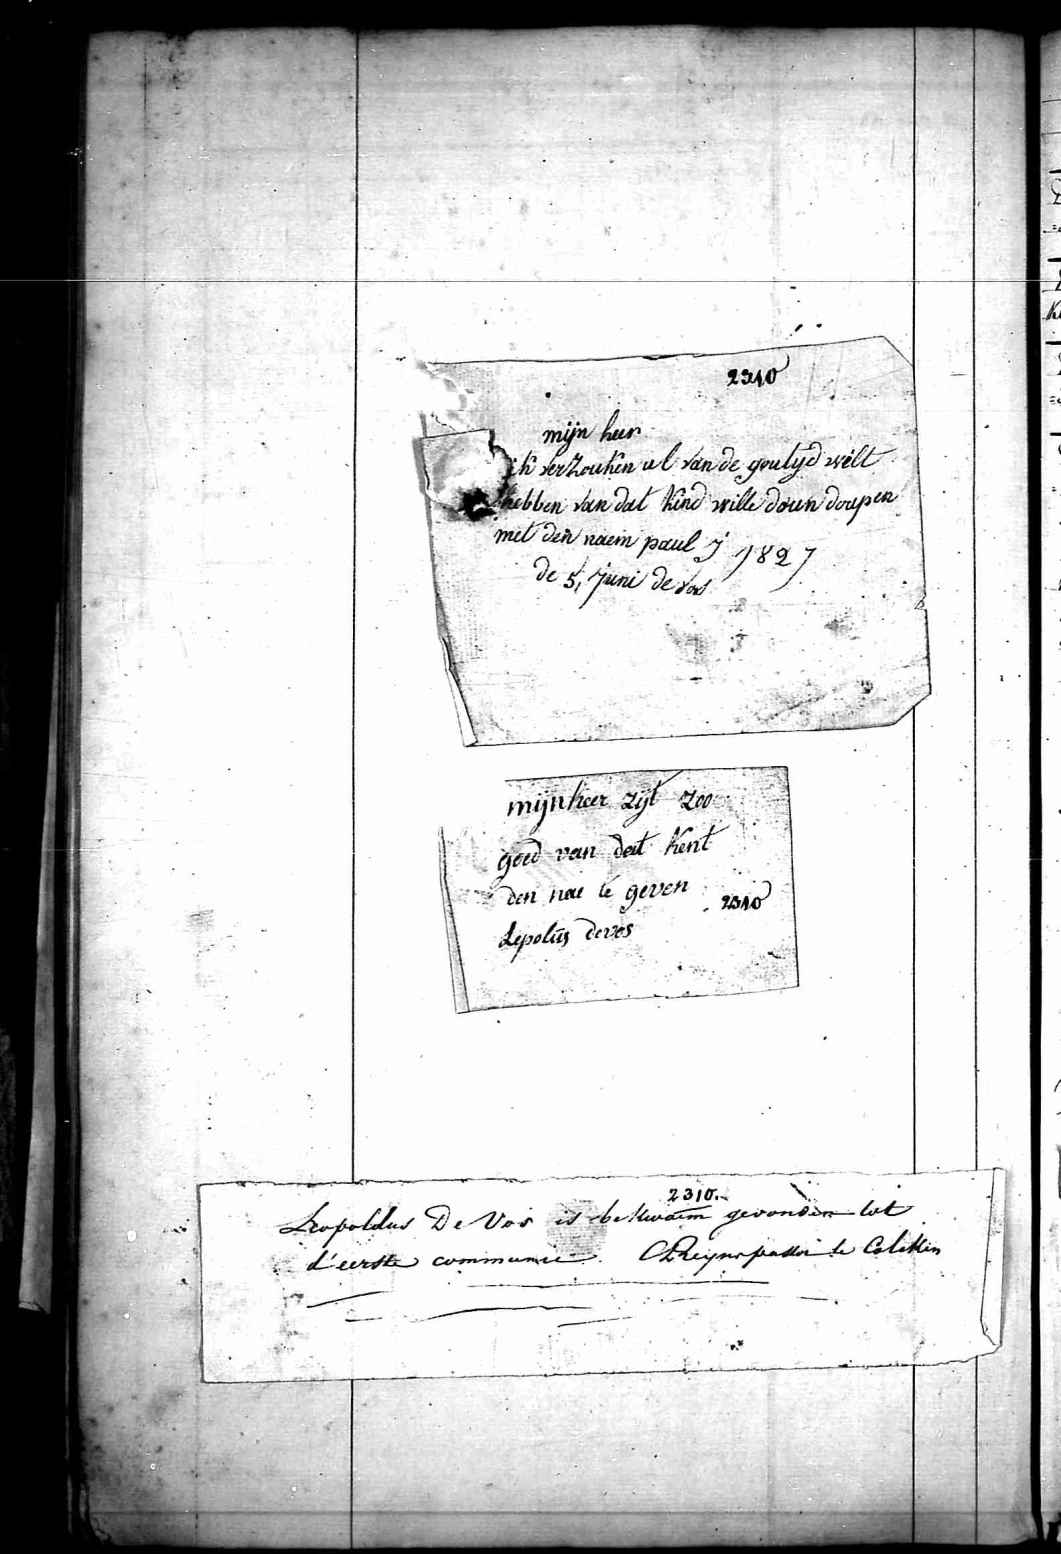 2310
mijn heer
ik verzouken ul van de goulyd wilt
hebben van dat kind wille doun doupen
met den naem paul j 1827
de 5, Juni de vos
mijnheer zijt zoo
goed van dat kent
den nae te geven
2310
Lepolus devos
2310.
Leopoldus De Vos is bekwaem gevonden tot
d'eerste communie. pastor te Calcken